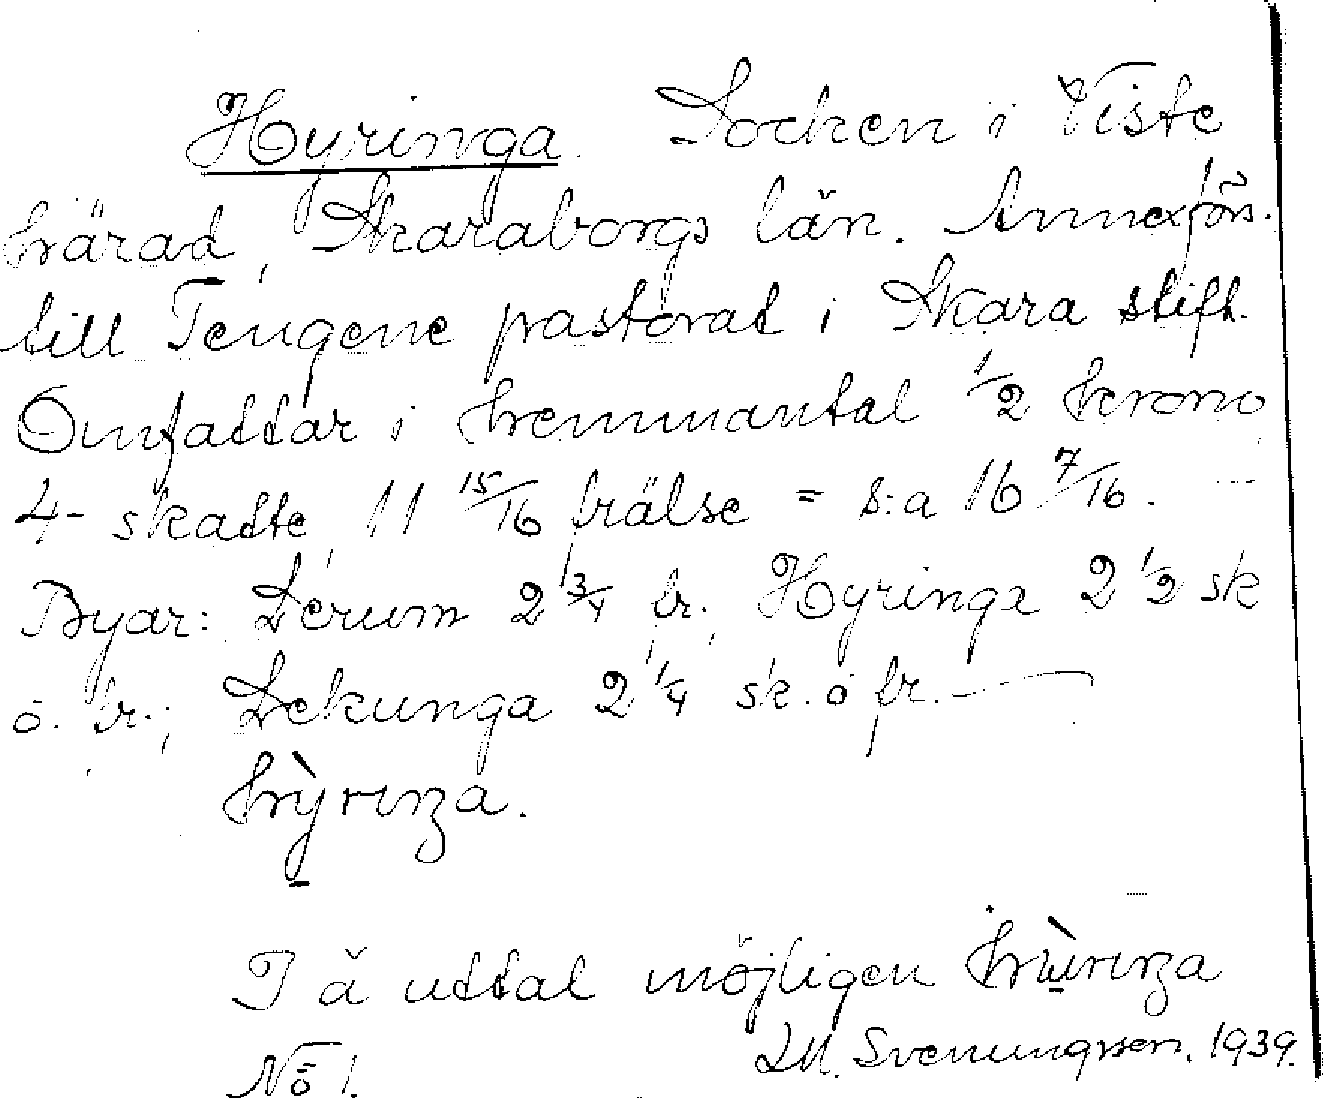 Hyringa. Socken i Viste
härad, Skaraborgs län. Annexförs.
till Tengene pastorat i Skara stift.
Omfattar i hemmantal 1/2 krono
4- skatte, 11 15/16 frälse = s:a 16 7/16. -
Byar: Derum 2 3/4 fr., Hyringa 2 1/2 sk
o. fr.; Dekunga 2 1/4 sk. o fr. —
hỳrıŋa.
I ä uttal möjligen
No 1.
Svenungsson. 1939.